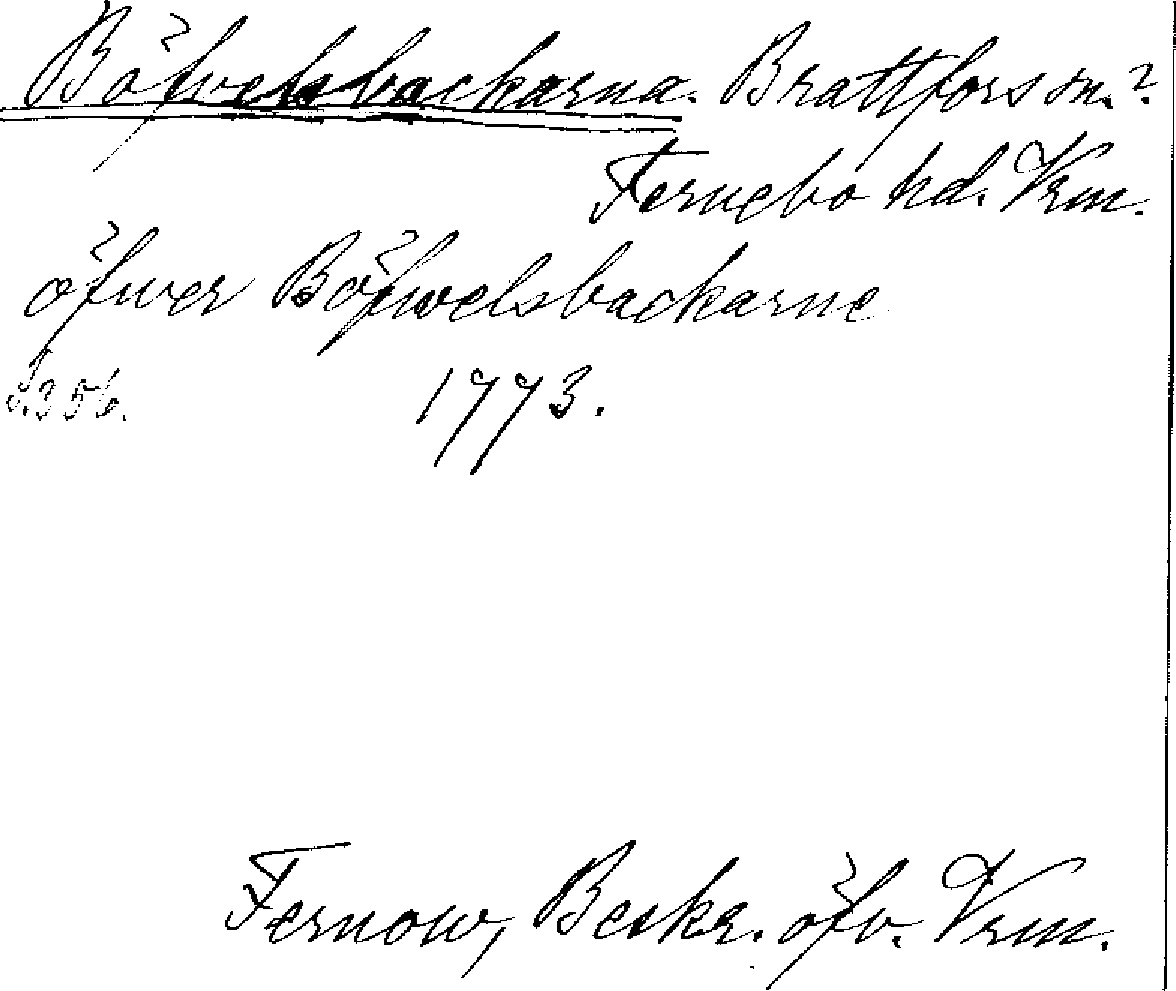 Böfwelsbackarna. Brattfors sn.?
Fernebo hd. Vrm.
öfwer Böfwelsbackarne
S. 356. 1773.
Fernow, Beskr. öfv. Vrm.